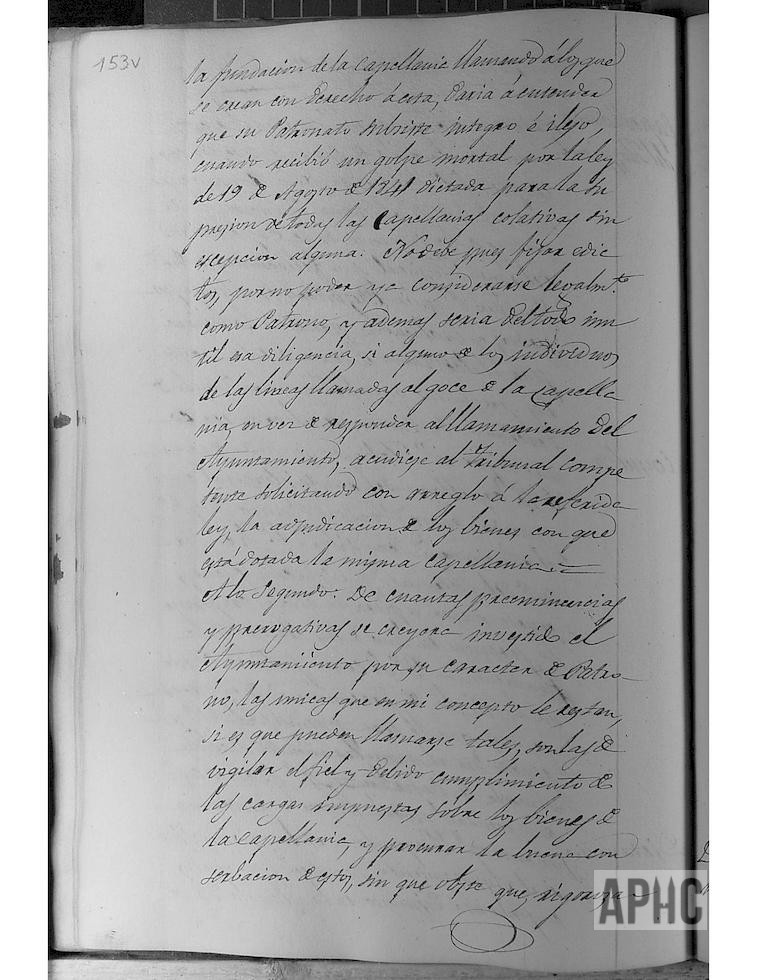 153v
la fundacion de la capellania llamando á los que
se crean con derecho á esta, daria á entender
que su Patronato subsiste integro é ileso,
cuando recibió un golpe mortal por la ley
de 19 de Agosto de 1841 dictada para la su
presion de todas las Capellanias colativas sin
escepcion alguna. No debe pues fijar edic
tos, por no poder ya considerarse legalmte.
como Patrono, y ademas seria del todo inu
til esa diligencia, si alguno de los individuos
de las lineas llamadas al goce de la Capella
nia, en vez de responder al llamamiento del
Ayuntamiento, acudiese al Tribunal compe
tente solicitando con arreglo á la referida
ley, la adjudicacion de los bienes con que
está dotada la misma capellania.=
A lo Segundo. De cuantas preeminencias
y prerogativas se creyera investido el
Ayuntamiento por su caracter de Patro-
no, las unicas que en mi concepto le restan,
si es que pueden llamarse tales, son las de
vigilar el fiel y debido cumplimiento de
las cargas impuestas sobre los bienes de
la capellania, y procurar la buena con
serbacion de estos, sin que obste que, rigoriza-
APHC